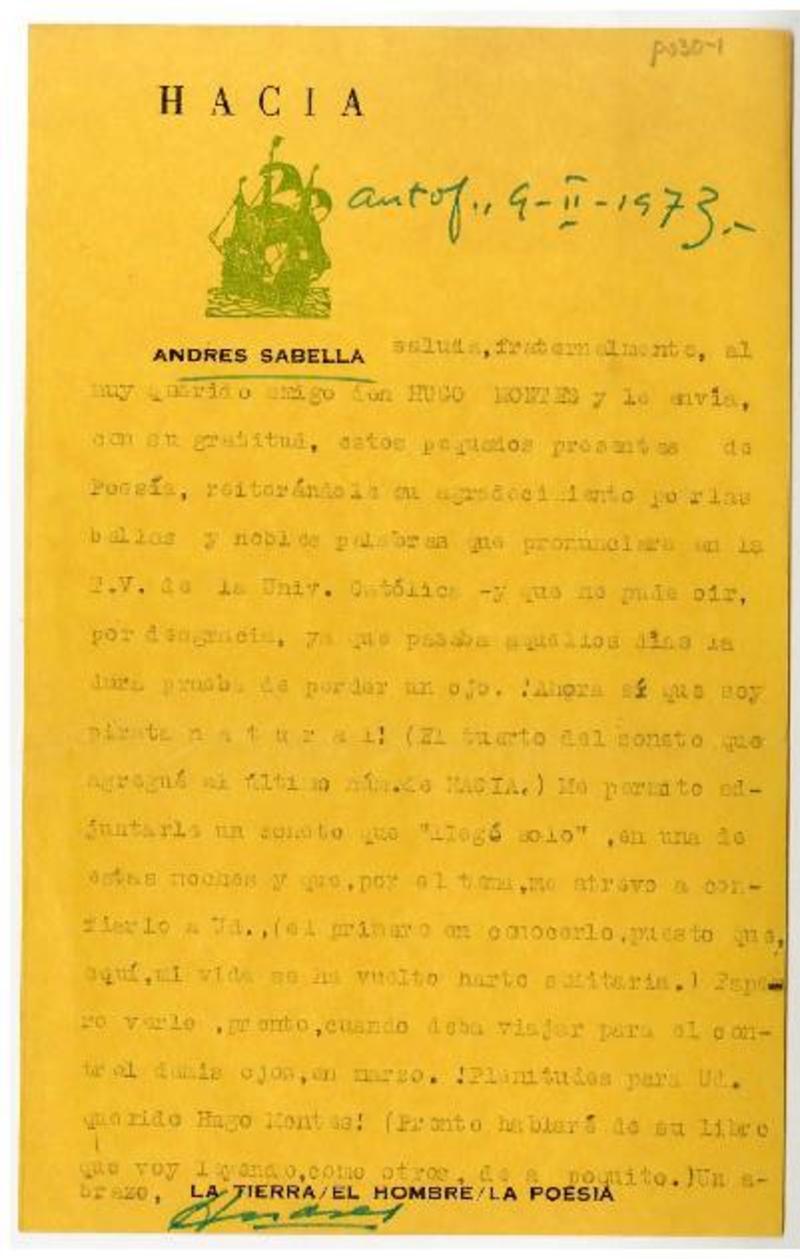 po30-1
HACIA
antof., 9-II-1973.-
ANDRES SABELLA saluda, fraternalmente, al
muy querido amigo don HUGO MONTES y le envía,
con su gratitud, estos pequeños presentes de
Poesía, reiterándole su agradecimiento por las
bellas y nobles palabras que pronunciara en la
T.V. de la Univ. Católica -y que no pude oir,
por desgracia, ya que pasaba aquellos días la
dura prueba de perder un ojo. !Ahora sí que soy
pirata n a t u r a l! (El tuerto del soneto que
agregué al último núm.de HACIA.) Me permito ad-
juntarle un soneto que "llegó solo" ,en una de
estas noches y que,por el tema,me atrevo a con-
fiarlo a Ud.,(el primero en conocerlo,puesto que,
aquí,mi vida se ha vuelto harto solitaria.) Espe-
ro verle ,pronto,cuando deba viajar para el con-
trol demis ojos,en marzo. !Plenitudes para Ud.
querido Hugo Montes! (Pronto hablaré de su libro
que voy leyendo,como otros, de a poquito.)Un a-
brazo, LA TIERRA/EL HOMBRE/LA POESIA
Andres